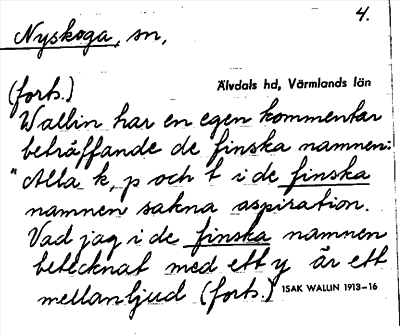 4.
Nyskoga, sn,
Älvdals hd, Värmlands län
(forts.)
Wallin har en egen kommentar
beträffande de finska namnen:
"Alla k, p och t i de finska
namnen sakna aspiration.
Vad jag i de finska namnen
betecknat med ett y är ett
mellanljud (forts.) ISAK WALLIN 1913-16